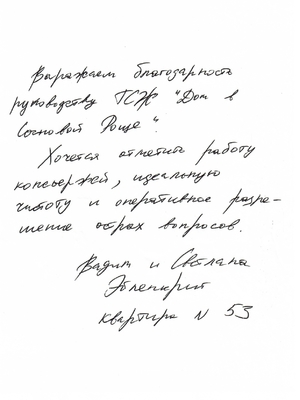 Выражаем благодарность
руководству ТСЖ "Дом в
Сосновой Роще".
Хочется отметить работу
консьержей, идеальную
чистоту и оперативное разре-
шение острах вопросов.
Вадим и Светлана
квартира N 53